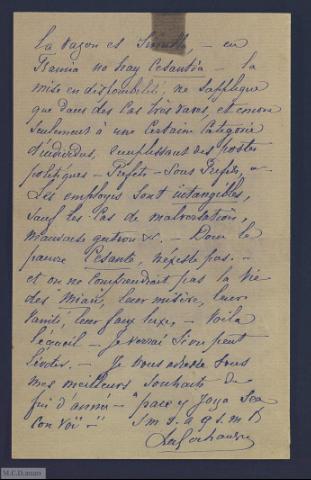 La razon es sencilla, - en
Francia no hay Cesantia - la
mise en disponibilité, ne s'applique
que dans des cas très rares, et encore
seulement à une certaine catégorie
d'individus, remplissant des postes
politiques - Préfets - Sous Préfets,
Les employés sont intangibles,
sauf les cas de malversation,
mauvaise gestion &. - Donc le
pauvre Cesante, n'existe pas. -
et on ne comprendrait pas la vie
des "Miau", leur misère, leur
vanité, leur faux luxe, - Voilà
l'écueil - Je verrai si on peut
l'éviter. - Je vous adresse tous
mes meilleurs souhaits de
fin d'année - "pace y joya sea
con voï" - S m s. a q s. m B
M.C.D. 2020